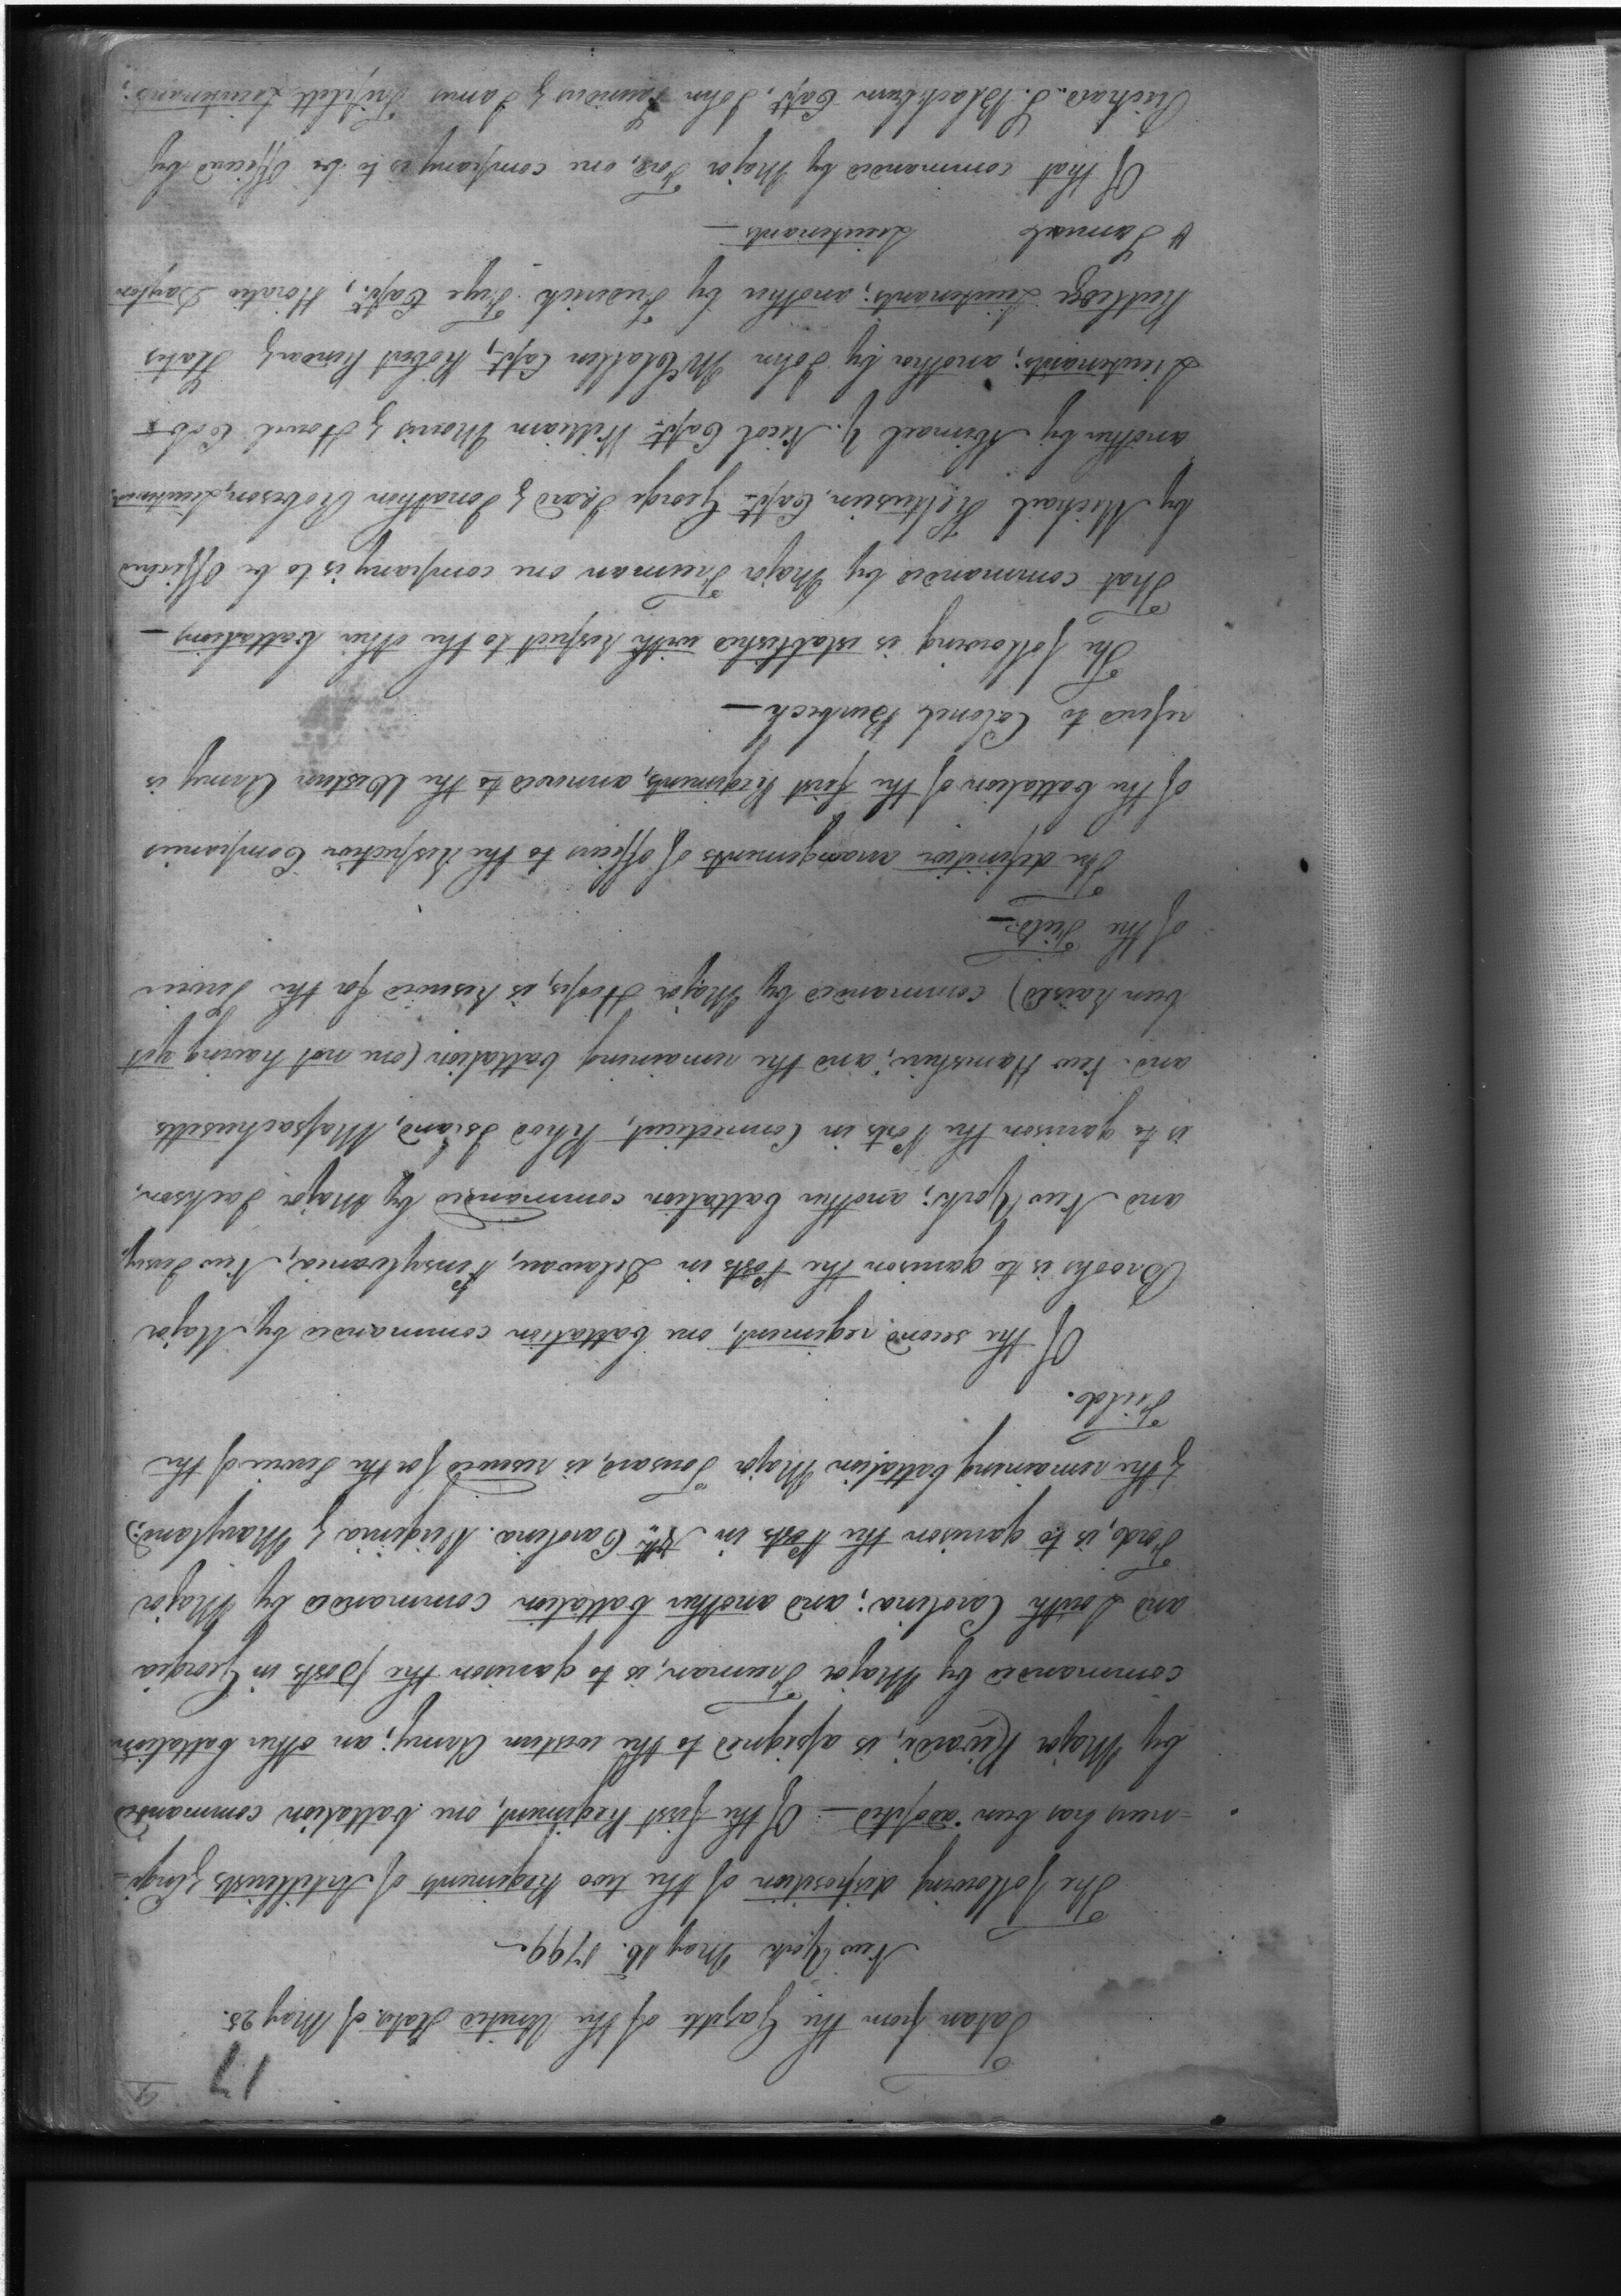 9
17
Taken from the Gazette of the United States of May 25.
New York May 16. 1799.
The following disposition of the two Regiments of Artillerists & Engi-
=neers has been adopted — Of the first Regiment, one battalion commanded
by Major Rivardi, is assigned to the western Army; an other battalion
commanded by Major Freeman, is to garrison the posts in Georgia
and South Carolina; and another battalion commanded by Major
Ford, is to garrison the Posts in Nth Carolina. Virginia & Maryland;
& the remaining battalion Major Tousard, is reserved for the Service of the
Field.
Of the second regiment, one battalion commanded by Major
Brooks is to garrison the Posts in Delaware, Pensylvania, New Jersey,
and New York; another battalion commanded by Major Jackson,
is to garrison the Posts in Connecticut, Rhod Island, Massachusetts
and New Hamshire; and the remaining battalion (one not having yet
been raised) commanded by Major Hoops, is reserved for the Service
of the Field —
The definitive arrangements of officers to the Respective Companies
of the battalion of the first Regiments, annexed to the Western Army is
refered to Colonel Burbeck —
The following is established with respect to the other battalions —
That commanded by Major Freeman one company is to be Officered
by Michael Kalteisen, Capt. George Izard & Jonathan Robeson, Lieutenants
another by Abimael Y. Nicol Capt. William Morris & Howel Cobb
Lieutenants; another by John McClallen Capt, Robert Rowan & States
Rutledge Lieutenants; another by Frederick Frye Capt, Horatio Dayton
& Samuel Lieutenants —
Of that commanded by Major Ford, one company is to be Officered by
Richard S. Blackburn Capt. John Saunders & James Triplett Lieutenants;